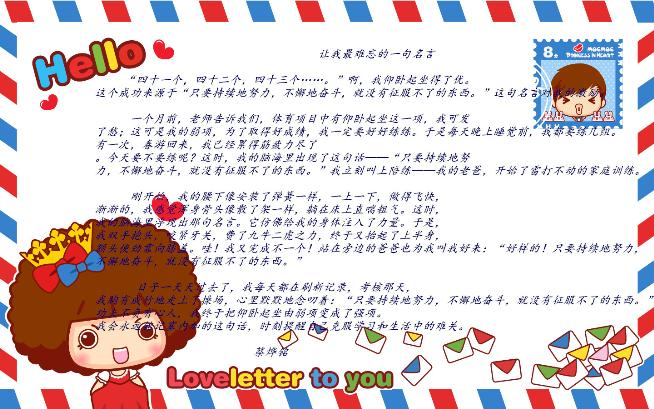 Hello
让我最难忘的一句名言
8分
MOEMOE
PRINCESS IN HEART
“四十一个，四十二个，四十三个……。”啊，我仰卧起坐得了优。
这个成功来源于“只要持续地努力，不懈地奋斗，就没有征服不了的东西。”这句名言对我的激励。
一个月前，老师告诉我们，体育项目中有仰卧起坐这一项，我可发
了愁；这可是我的弱项，为了取得好成绩，我一定要好好练练。于是每天晚上睡觉前，我都要练几组。
有一次，春游回来，我已经累得筋疲力尽了
。今天要不要练呢？这时，我的脑海里出现了这句话——“只要持续地努
力，不懈地奋斗，就没有征服不了的东西。”我立刻叫上陪练——我的老爸，开始了雷打不动的家庭训练。
刚开始，我的腰下像安装了弹簧一样，一上一下，做得飞快，
渐渐的，我感觉浑身骨头像散了架一样，躺在床上直喘粗气。这时，
我的脑海里浮现出那句名言。它仿佛给我的身体注入了力量。于是，
我双手抱头，咬紧牙关，费了九牛二虎之力，终于又抬起了上半身，
额头使劲靠向膝盖。哇！我又完成不一个！站在旁边的爸爸也为我叫我好来：“好样的！只要持续地努力，
不懈地奋斗，就没有征服不了的东西。”
日子一天天过去了，我每天都在刷新记录，考核那天，
我胸有成竹地走上了操场，心里默默地念叨着：“只要持续地努力，不懈地奋斗，就没有征服不了的东西。”
功夫不负有心人，我终于把仰卧起坐由弱项变成了强项。
我会永远铭记墓内的这句话，时刻提醒自己克服学习和生活中的难关。
蔡烨铭
Loveletter to you